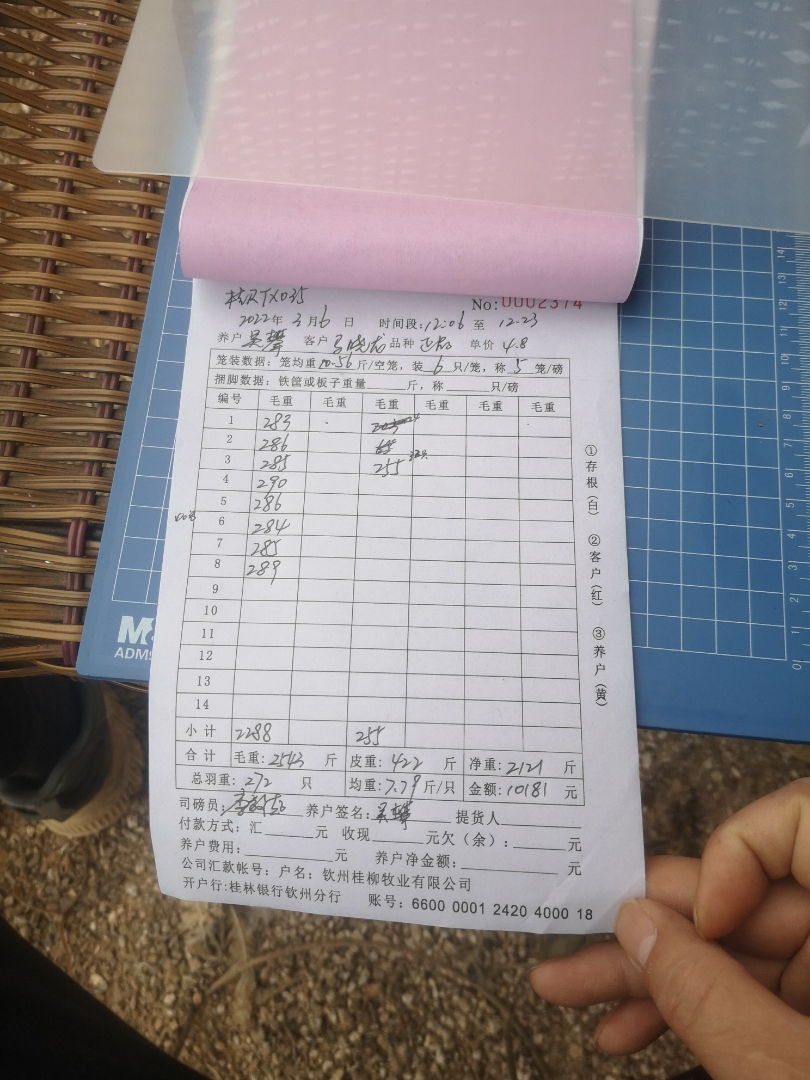 TX035
No: 0002374
2022年 3月6 日 时间段:12:06 至 12.23
养户 吴 客户 马晓龙 品种 单价 4.8
笼装数据: 笼均重10.56斤/空笼, 装 6 只/笼, 称 5 笼/磅
捆脚数据: 铁筐或板子重量 斤, 称 只/磅
编号 毛重 毛重 毛重 毛重 毛重 毛重
1 283
2 286
3 285 255
4 290
5 286
6 284
7 285
8 289
9
10
11
12
13
14
小 计 2288 255
合 计 毛重: 2543 斤 皮重: 422 斤 净重: 2121 斤
总羽重: 272 只 均重: 7.79 斤/只 金额: 10181 元
司磅员: 养户签名: 吴 提货人
付款方式: 汇 元 收现 元欠(余): 元
养户费用: 元 养户净金额: 元
公司汇款帐号: 户名: 钦州桂柳牧业有限公司
开户行:桂林银行钦州分行 账号: 6600 0001 2420 4000 18
①存根(白) ②客户(红) ③养户(黄)
M&
ADMS
0
1
2
3
14